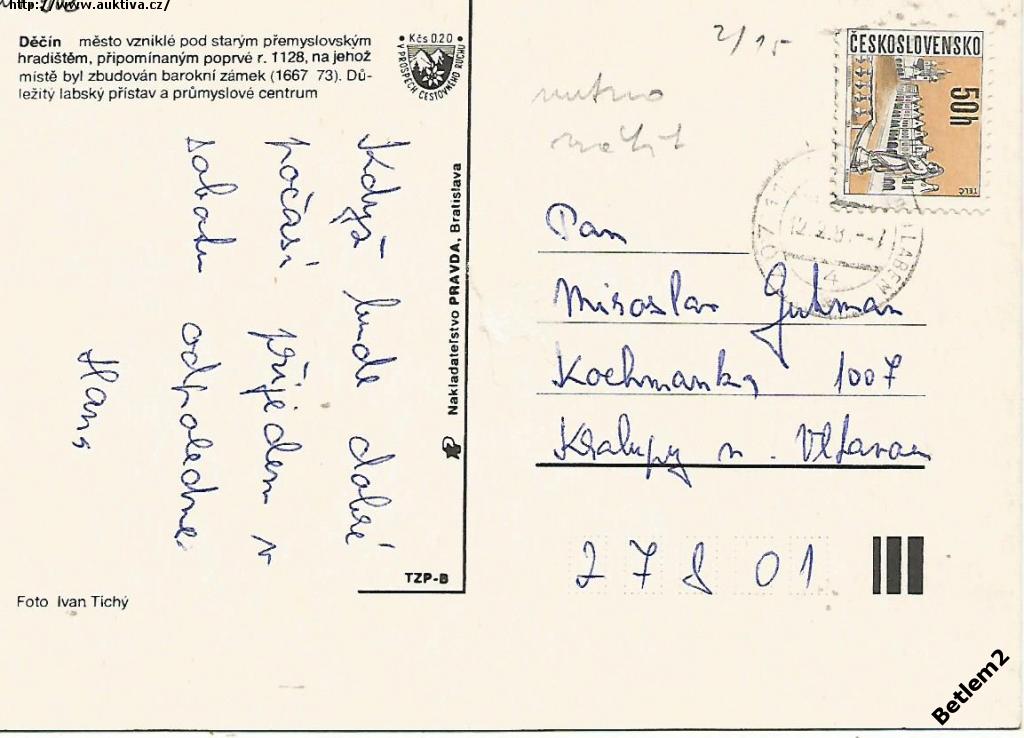 http://www.auktiva.cz/
Děčín město vzniklé pod starým přemyslovským
hradištěm, připomínaným poprvé r. 1128, na jehož
místě byl zbudován barokní zámek (1667 73). Dů-
ležitý labský přístav a průmyslové centrum
• Kčs 0.20 •
V PROSPĚCH CESTOVNÍHO RUCHU
Když bude dobré
počasí přijedem v
sobotu odpoledne.
Hans
Nakladateľstvo PRAVDA, Bratislava
TZP-B
Foto Ivan Tichý
2/15
nutno
ČESKOSLOVENSKO
50h
TELČ
LABEM
4
Pan
Miroslav Guhman
Kochmanka 1007
Kralupy n. Vltavou
278 01
Betlem2